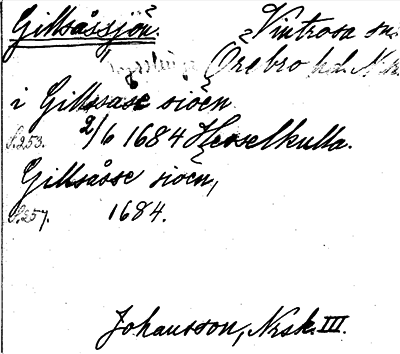 Gillsåssjön. Vintrosa sn.
Örebro hd. Nke
i Gillsåse siöen
S.253. 2/6 1684 Hesselkulla.
Gillsåsse siöen,
S.257. 1684.
Johansson, Nrsk. III.